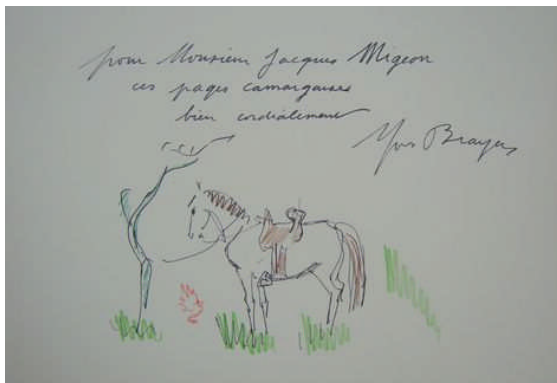 pour Monsieur Jacques Migeon
ces pages camarguaises
bien cordialement
Yves Brayer